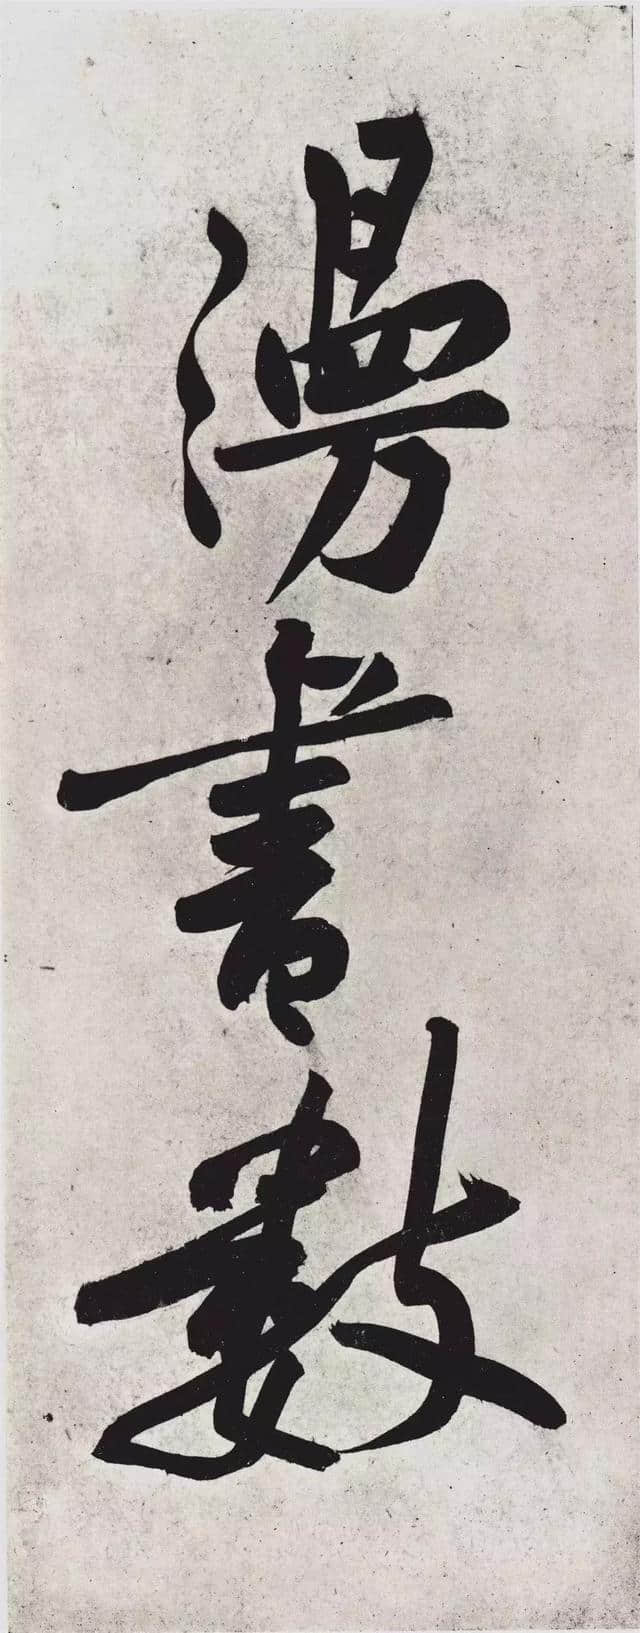 漫書數